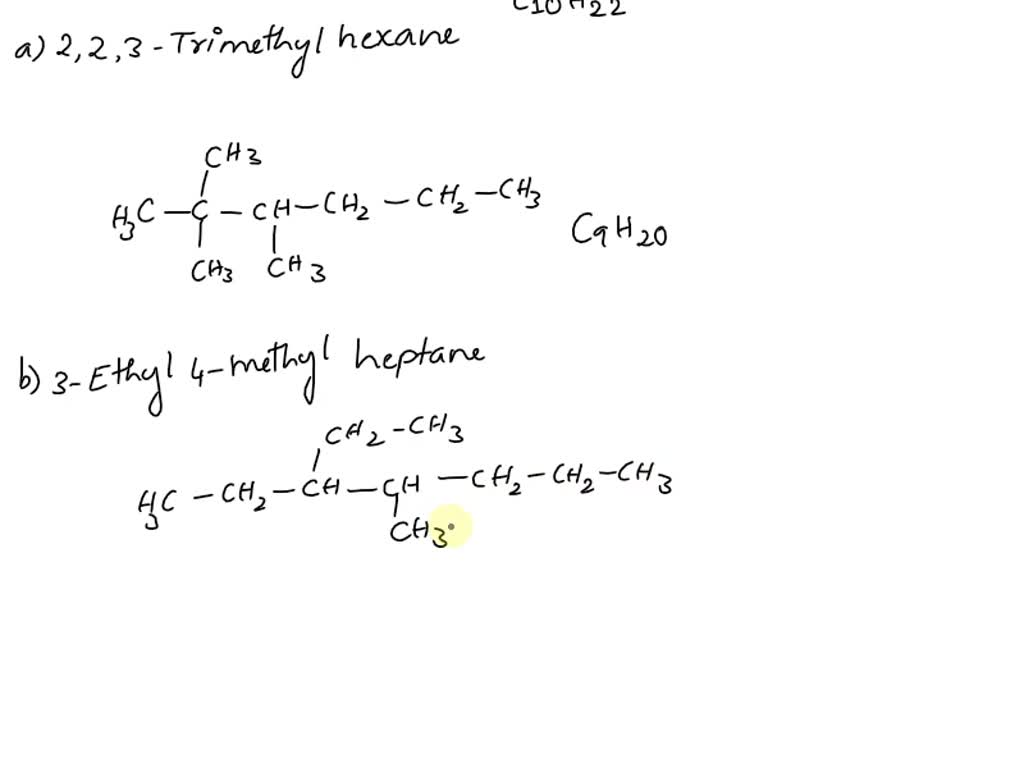 C10H22
a) 2,2,3-Trimethyl hexane
CH3
H3C-C-CH-CH2-CH2-CH3
CH3 CH3
C9H20
b) 3-Ethyl 4-methyl heptane
CH2-CH3
H3C-CH2-CH-CH-CH2-CH2-CH3
CH3